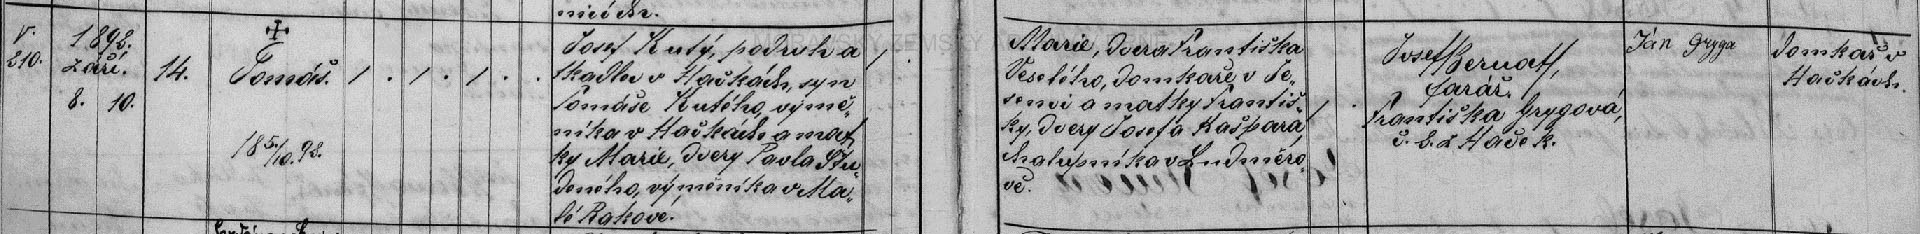 V. 1898.
210. září.
8. 10.
14.
Tomáš.
18 5/10. 98.
nicích.
Josef Kutý, podruh a
tkadlec v Hačkách, syn
Tomáše Kutého, výmě-
níka v Hačkách a mat-
ky Marie, dcery Pavla Stu-
deného, výměníka v Ma-
lé Rakové.
Marie, dcera Františka
Veselého, domkaře v Je-
senci a matky Františ-
ky, dcery Josefa Kašpara,
chalupníka v Ludmíro-
vě.
Josef Bernatt,
farář.
Františka Grygová,
č. 8. z Haček.
Ján Gryga
domkař v
Hačkách.
ZEMSKÝ